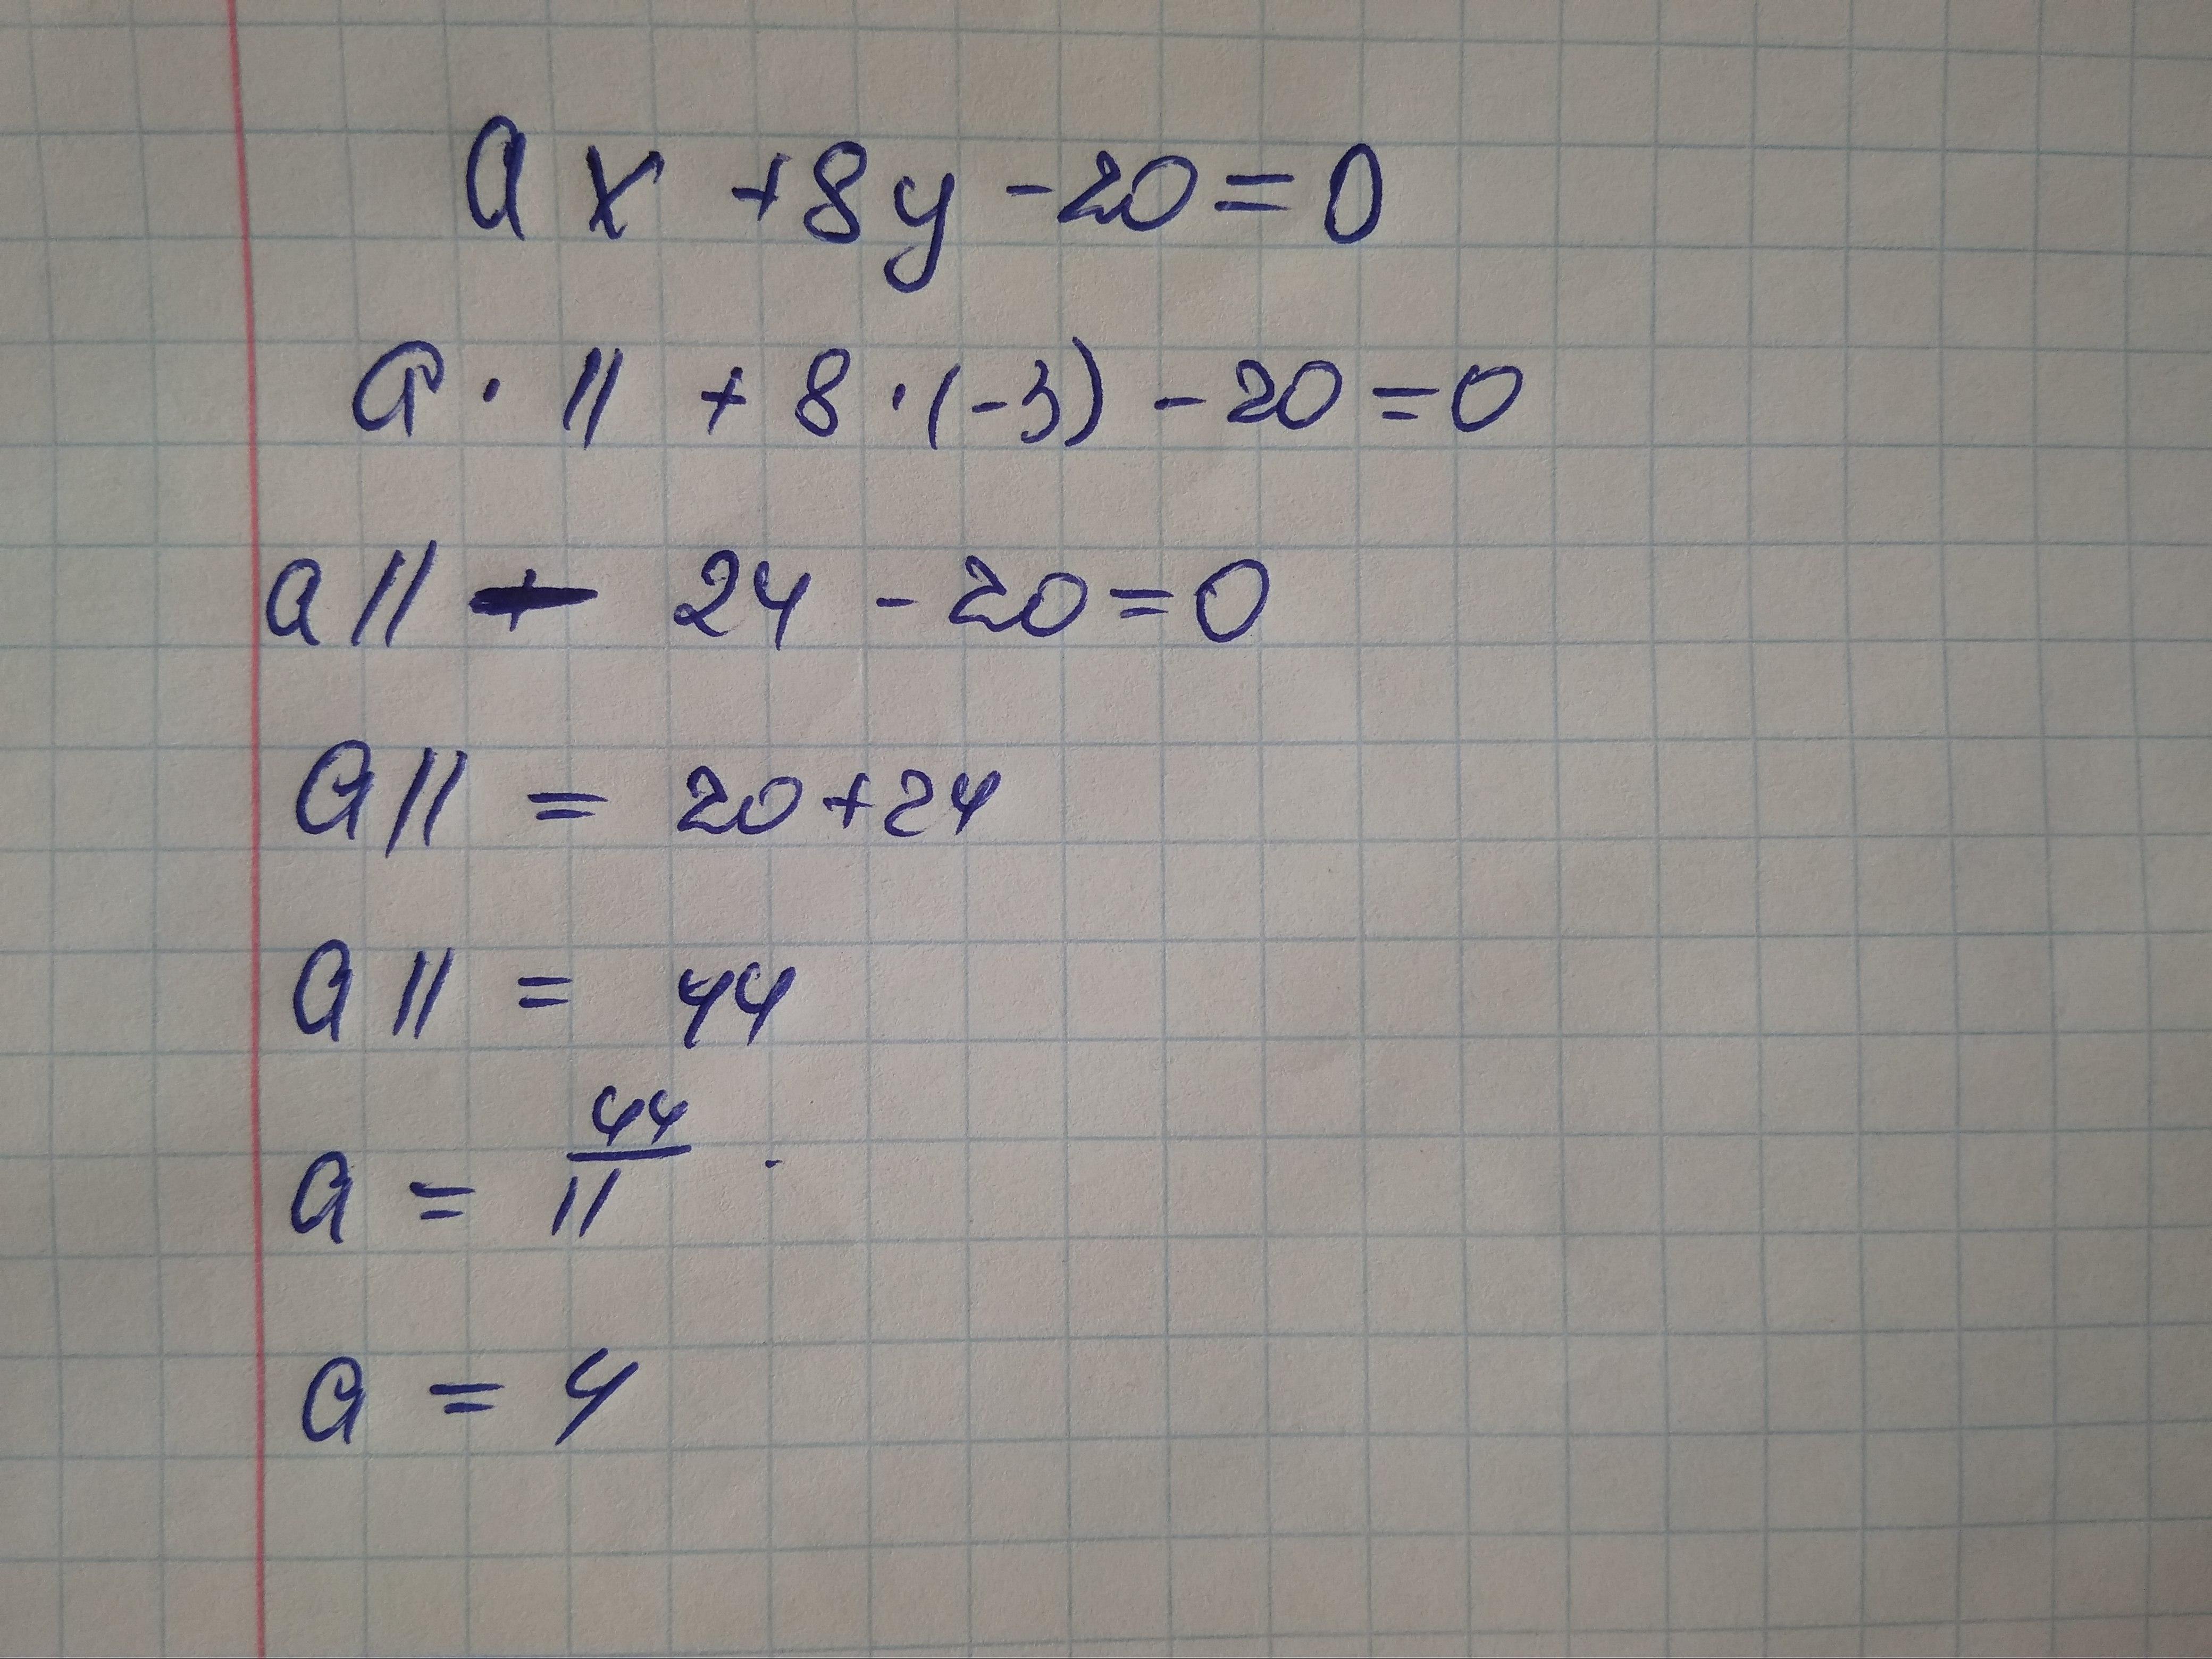 ax + 8y - 20 = 0
a · 11 + 8 · (-3) - 20 = 0
a11 - 24 - 20 = 0
a11 = 20 + 24
a11 = 44
a = 44/11
a = 4